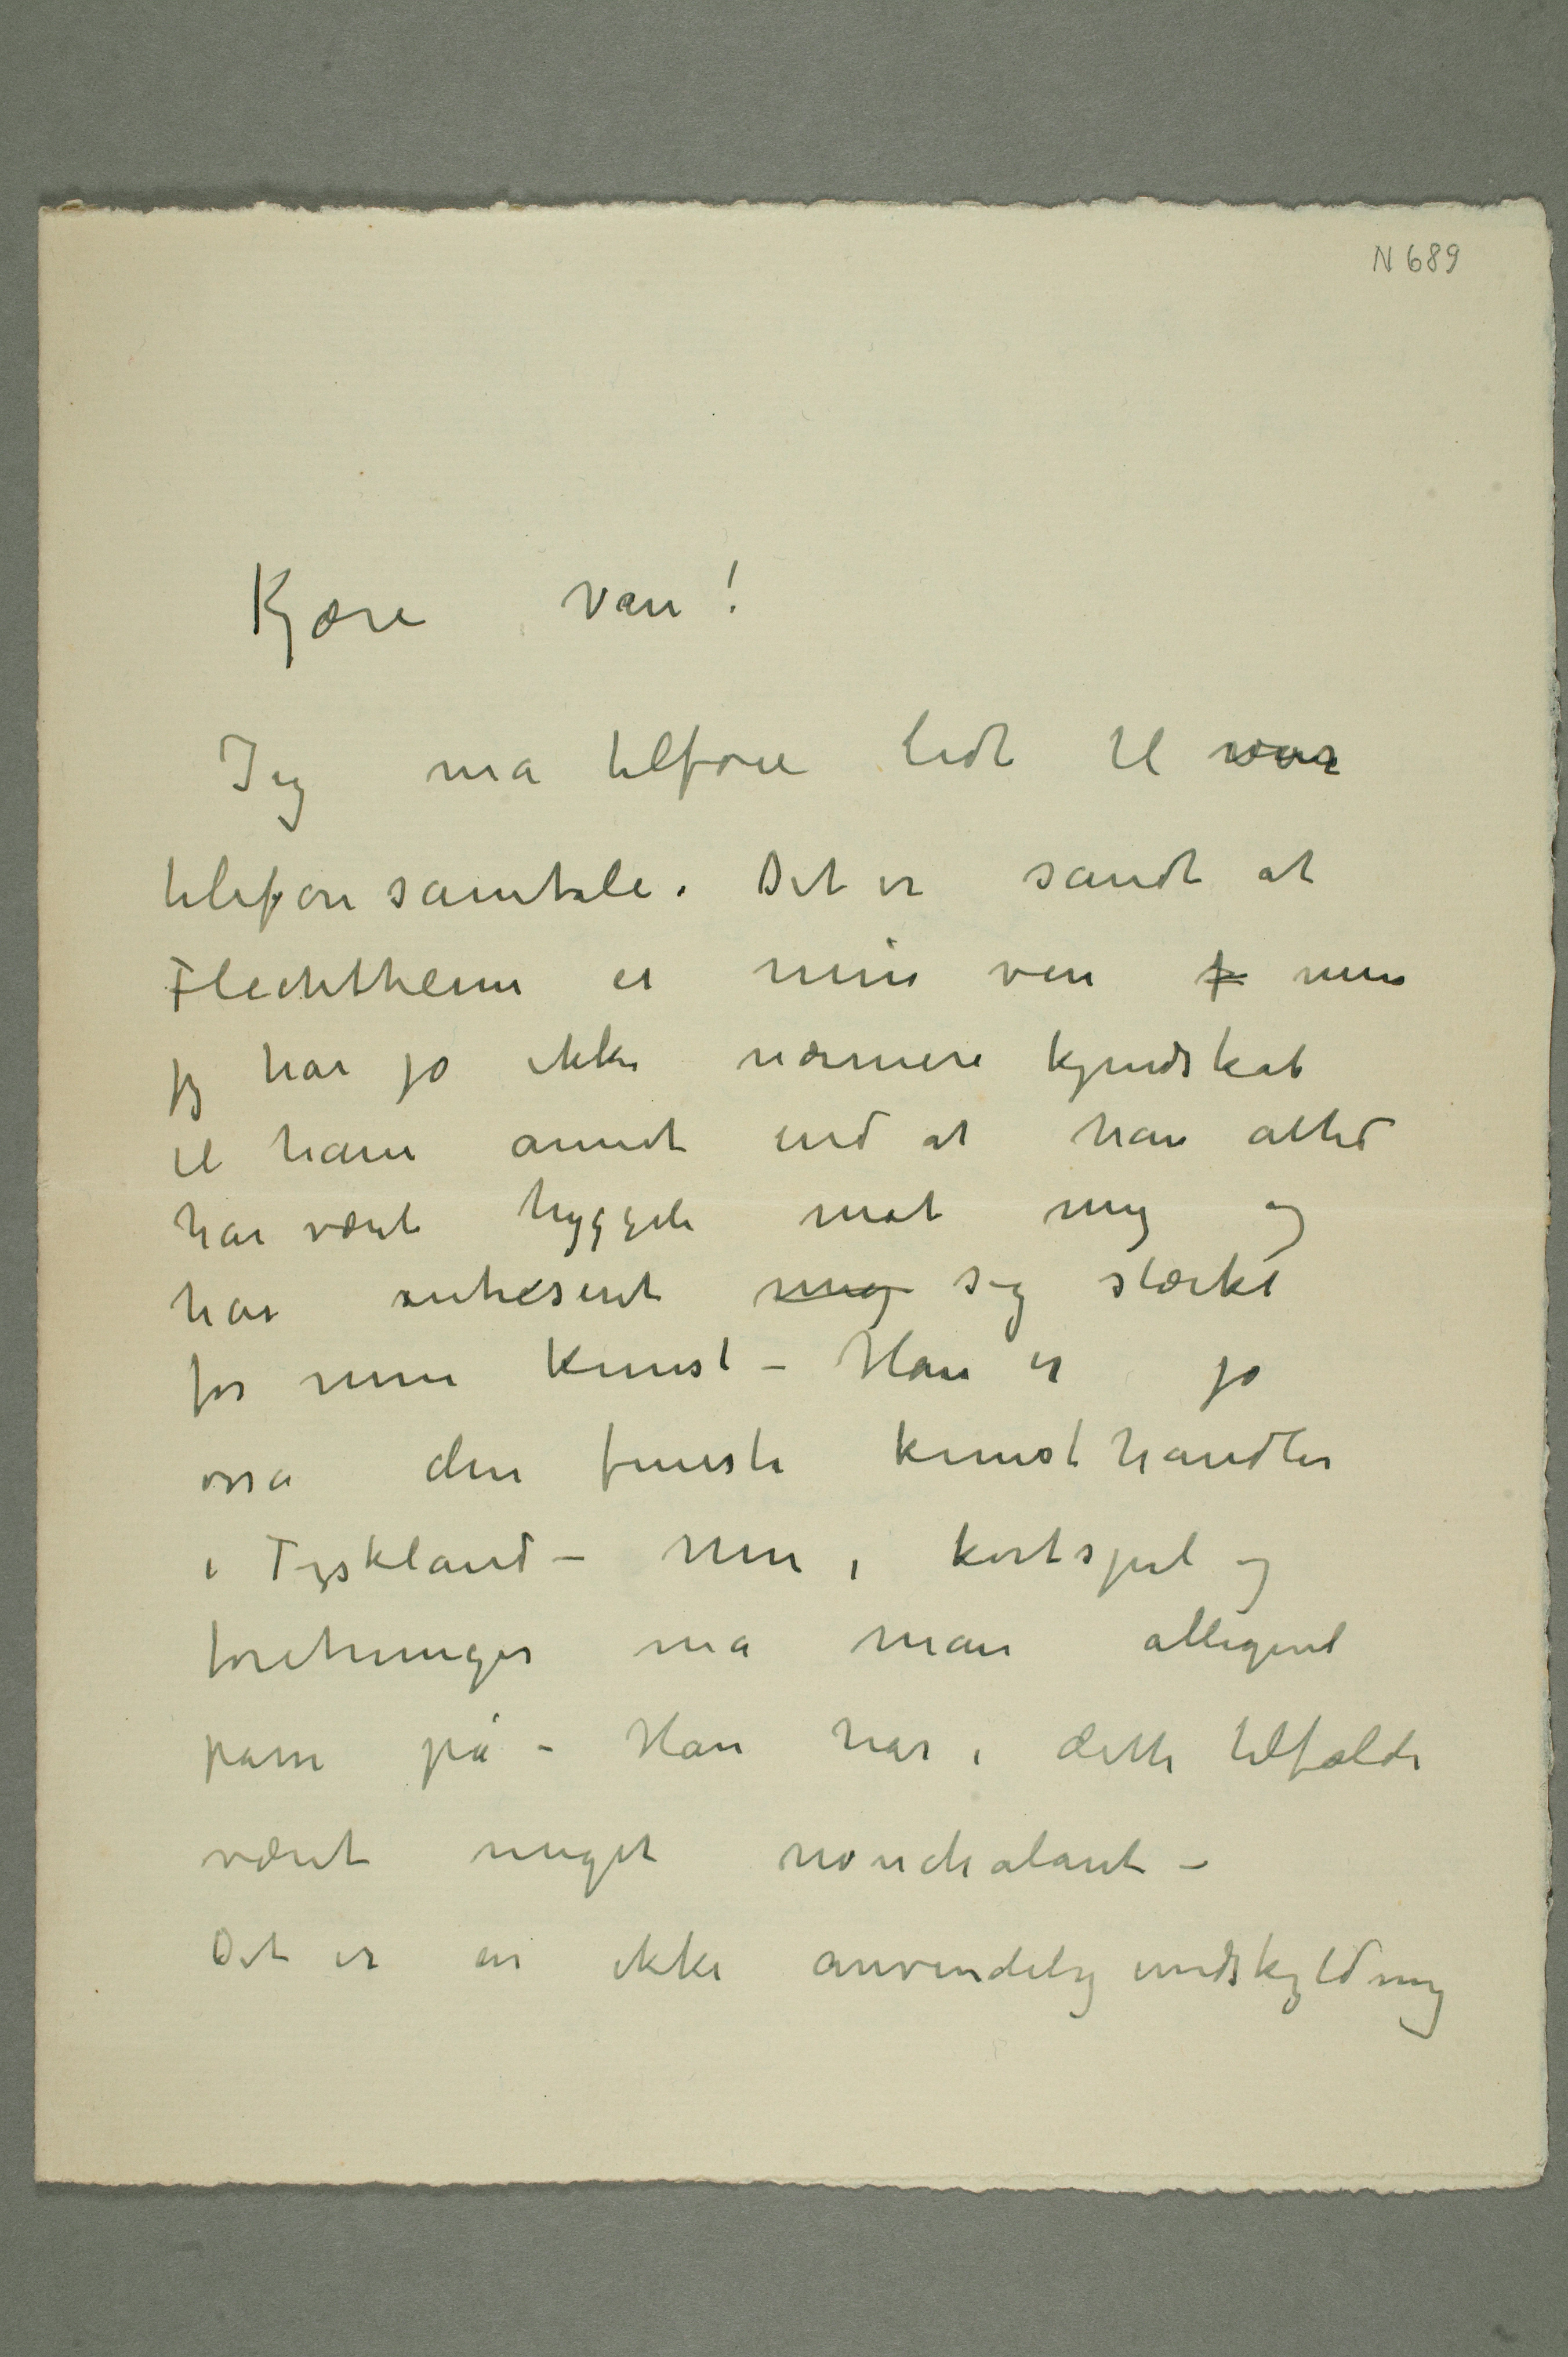 N 689
Kjære ven!
Jeg må tilføie lidt til vor
telefonsamtale. Det er sandt at
Flechtheim er min ven f men
jeg har jo ikke nærmere kjendskab
til ham annet end at han altid
har været hyggeli mot mig og
har interesert mig sig stærkt
for min kunst – Han er jo
osså den fineste kunsthandler
i Tyskland – Men i kortspil og
foretninger må man alligevel
passe på – Han har i dette tilfælde
været meget nonchalant –
Det er en ikke anvendelig undskyldning